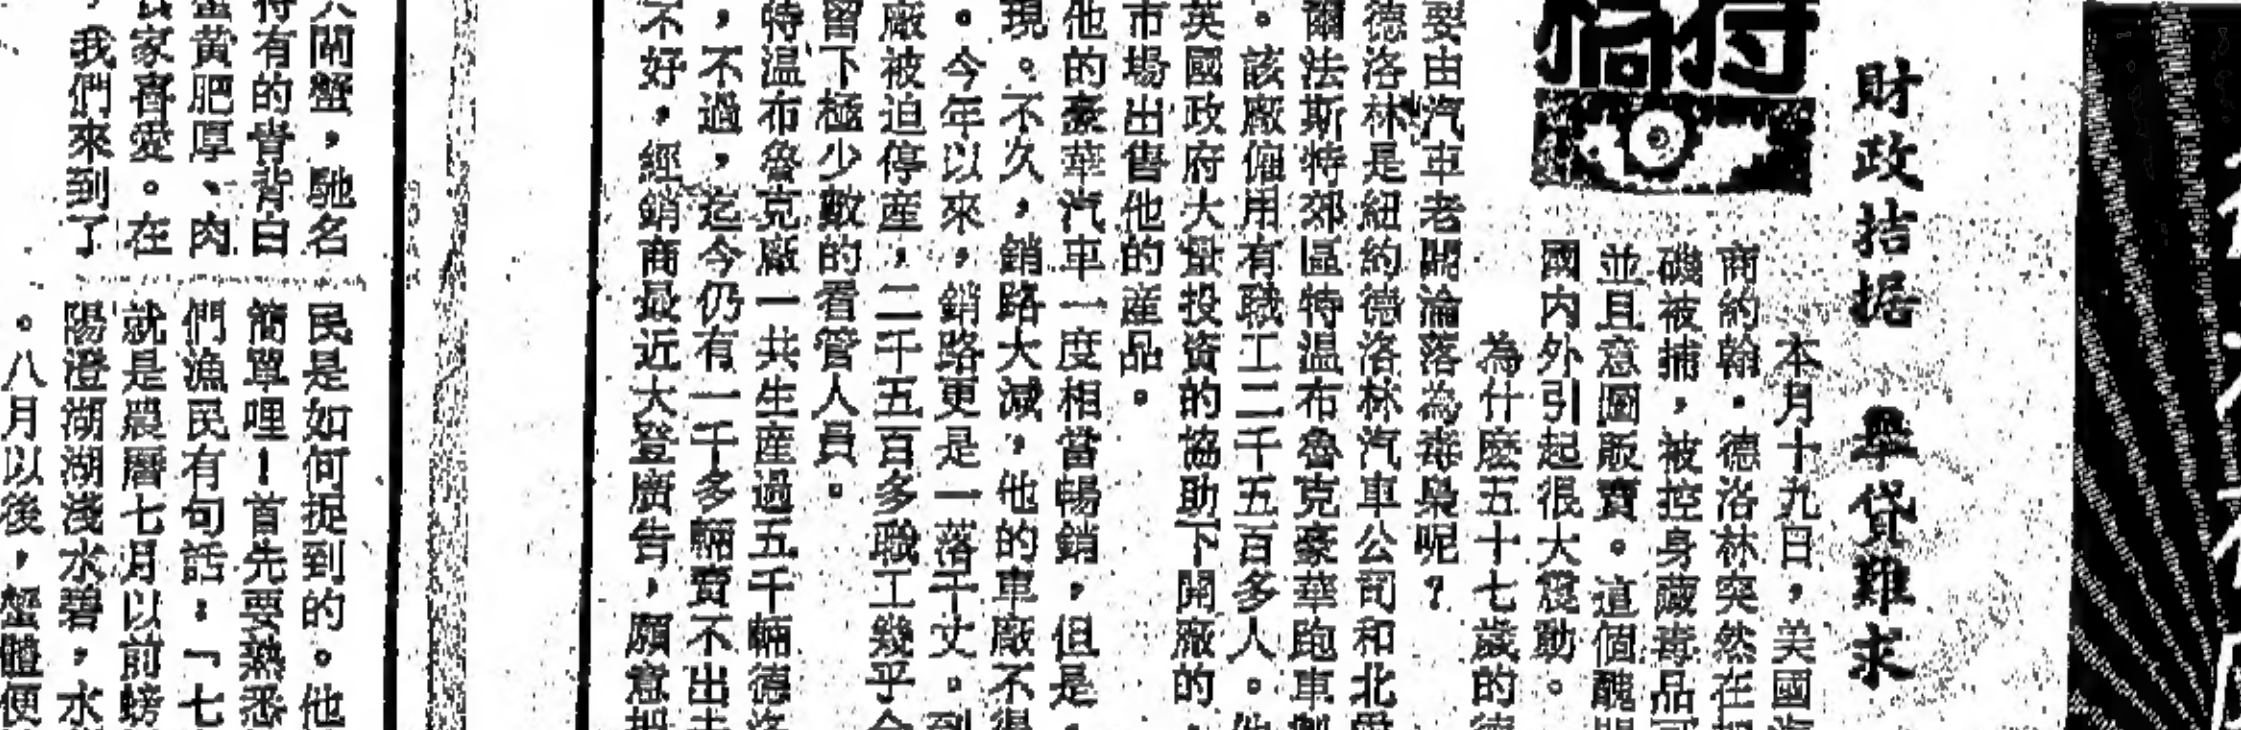 財政拮据 舉貸難求
本月十九日，美國
商約翰．德洛林突然在
磯被捕，被控身藏毒品
並且意圖販賣。這個醜
國內外引起很大震動。
為什麼五十七歲的德
要由汽車老闆淪落為毒梟呢？
德洛林是紐約德洛林汽車公司和北愛
爾法斯特郊區特溫布魯克豪華跑車製
。該廠僱用有職工二千五百多人。他
英國政府大量投資的協助下開廠的，
市場出售他的產品。
他的豪華汽車一度相當暢銷，但是，
現。不久，銷路大減，他的車廠不得
。今年以來，銷路更是一落千丈。到
廠被迫停產，二千五百多職工幾乎全
留下極少數的看管人員。
特溫布魯克廠一共生產過五千輛德洛
，不過，迄今仍有一千多輛賣不出去
不好，經銷商最近大登廣告，願意把
閘蟹，馳名
有的青背白
蟹黃肥厚、肉
家喜愛。在
，我們來到了
民是如何捉到的。他
簡單哩！首先要熟悉
們漁民有句話：「七
就是農曆七月以前螃
陽澄湖湖淺水碧，水
。八月以後，蟹體便